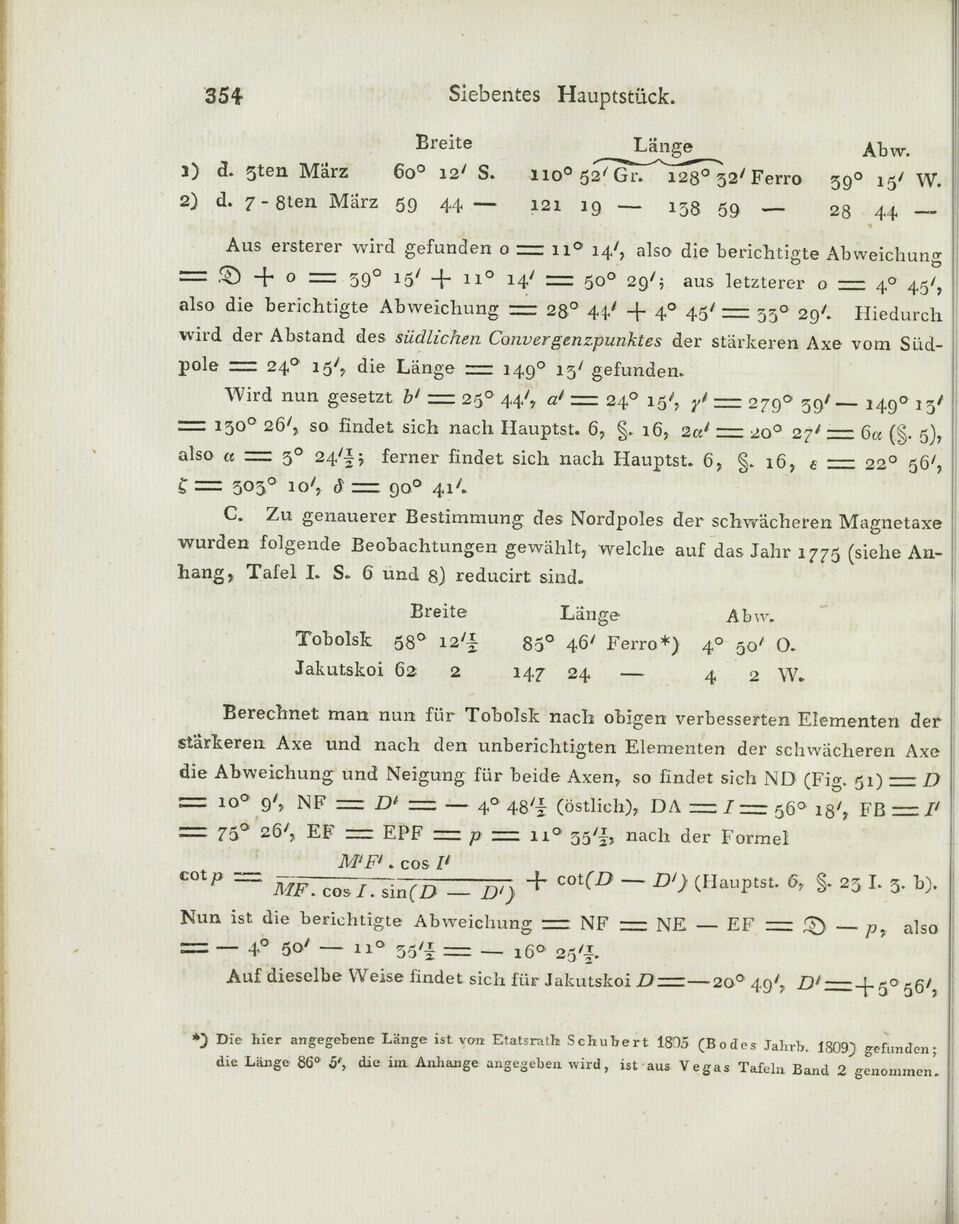 354 Siebentes Hauptstück.
Breite Länge Abw.
1) d. 5ten März 60° 12′ S. 110° 52′ Gr. 128° 32′ Ferro 39° 15′ W.
2) d. 7-8ten März 59 44 — 121 19 — 138 59 — 28 44 —
Aus ersterer wird gefunden o = 11° 14′, also die berichtigte Abweichung
= 𝔇 + o = 39° 15′ + 11° 14′ = 50° 29′; aus letzterer o = 4° 45′,
also die berichtigte Abweichung = 28° 44′ + 4° 45′ = 33° 29′. Hiedurch
wird der Abstand des südlichen Convergenzpunktes der stärkeren Axe vom Süd-
pole = 24° 15′, die Länge = 149° 13′ gefunden.
Wird nun gesetzt b′ = 25° 44′, a′ = 24° 15′, γ′ = 279° 39′ — 149° 13′
= 130° 26′, so findet sich nach Hauptst. 6, §. 16, 2α′ = 20° 27′ = 6α (§. 5),
also α = 3° 24′½; ferner findet sich nach Hauptst. 6, §. 16, ε = 22° 56′,
ζ = 303° 10′, δ = 90° 41′.
C. Zu genauerer Bestimmung des Nordpoles der schwächeren Magnetaxe
wurden folgende Beobachtungen gewählt, welche auf das Jahr 1775 (siehe An-
hang, Tafel I. S. 6 und 8) reducirt sind.
Breite Länge Abw.
Tobolsk 58° 12′½ 85° 46′ Ferro*) 4° 50′ O.
Jakutskoi 62 2 147 24 — 4 2 W.
Berechnet man nun für Tobolsk nach obigen verbesserten Elementen der
stärkeren Axe und nach den unberichtigten Elementen der schwächeren Axe
die Abweichung und Neigung für beide Axen, so findet sich ND (Fig. 51) = D
= 10° 9′, NF = D′ = — 4° 48′½ (östlich), DA = I = 56° 18′, FB = I′
= 75° 26′, EF = EPF = p = 11° 35′½, nach der Formel
cot p = M′F′ . cos I′ / MF. cos I. sin(D — D′) + cot(D — D′) (Hauptst. 6, §. 23 I. 3. b).
Nun ist die berichtigte Abweichung = NF = NE — EF = 𝔇 — p, also
= — 4° 50′ — 11° 35′½ = — 16° 25′½.
Auf dieselbe Weise findet sich für Jakutskoi D = — 20° 49′, D′ = + 5° 56′,
*) Die hier angegebene Länge ist von Etatsrath Schubert 1805 (Bodes Jahrb. 1809) gefunden;
die Länge 86° 5′, die im Anhange angegeben wird, ist aus Vegas Tafeln Band 2 genommen.